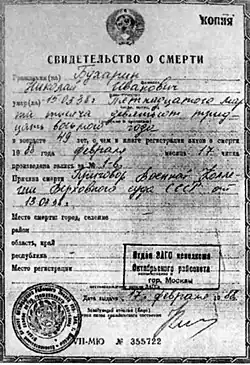 КОПИЯ
СВИДЕТЕЛЬСТВО О СМЕРТИ
Гражданин(ка) Бухарин
Николай Иванович
умер(ла) 15.03.38г. Пятнадцатого мар
та тысяча девятьсот трид
цать восьмого года
в возрасте 49 лет, о чем в книге регистрации актов о смерти
19 88 года февраля месяца 17 числа
произведена запись за №
Причина смерти Приговор Военной Колле
гии Верховного суда СССР от
13.03.38.
Место смерти: город, селение
район
область, край
республика
Место регистрации
Отдел ЗАГС исполкома
Октябрьского райсовета
гор. Москвы
Дата выдачи 17 февраля 19 88
Заведующий отделом (бюро)
записи актов гражданского состояния
VII-МЮ № 355722